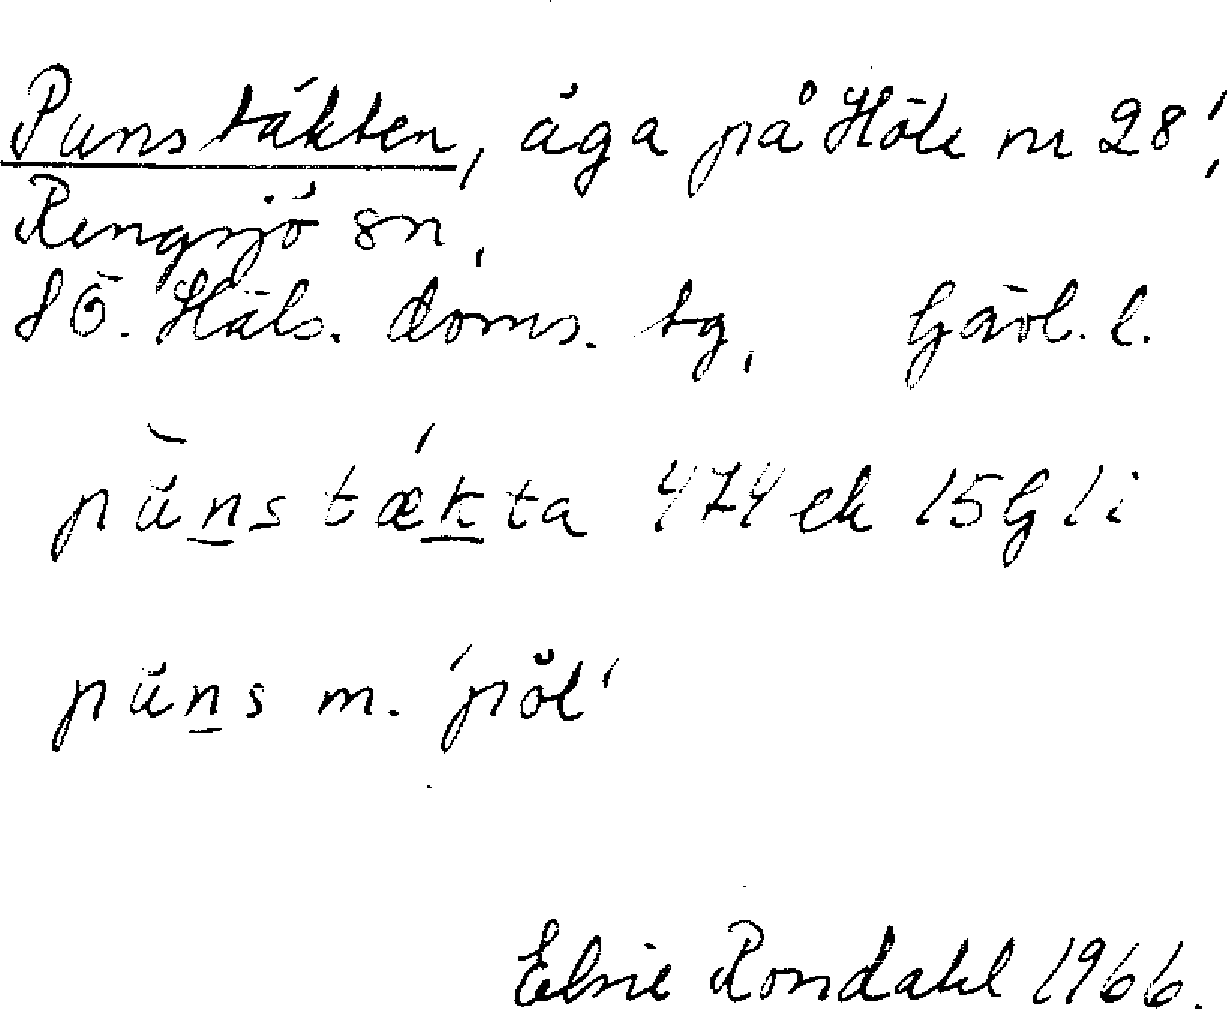 Punstäkten, äga på Höle nr 28!,
Rengsjö sn,
SÖ. Häls. doms. tg, Gävl. l.
pŭns tækta 474 ek 15G 1i
pŭns m. 'pöl'
Elsie Rondahl 1966.